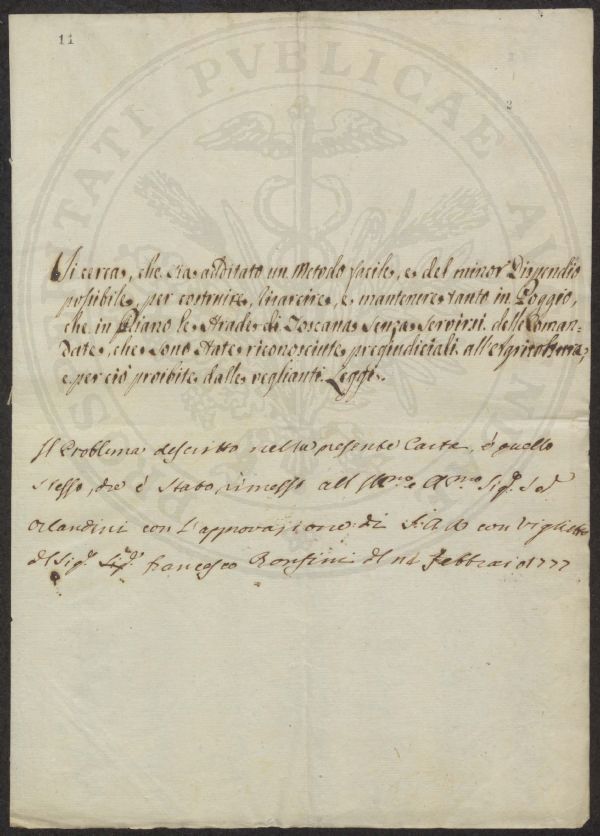 11
2
PROSPERITATI PVBLICAE AV
Si cerca, che sia additato un Metodo facile, e del minor Dispendio
possibile, per costruire, risarcire, e mantenere tanto in Poggio,
che in Piano le Strade di Toscana senza servirsi delle Coman-
date, che sono state riconosciute pregiudiciali all'Agricoltura,
e perciò proibite dalle veglianti Leggi.
Il Problema descritto nella presente Carta, é quello
stesso, che é stato rimesso all' Sig.r
Orlandini con l'approvazione di S.A.R. con Viglietto
del Sig.r Francesco Bonsini del Febbraio 1777